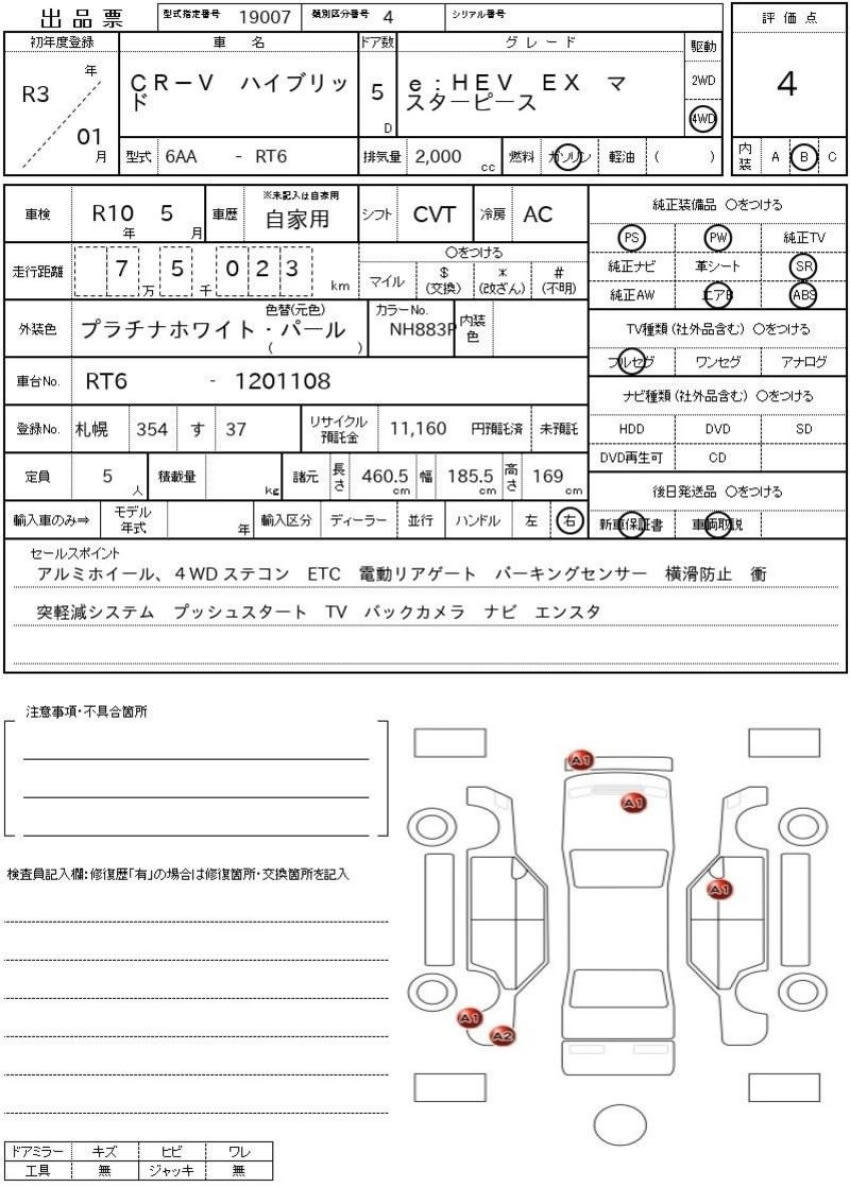 出品票 型式指定番号 19007 類別区分番号 4 シリアル番号
評価点
初年度登録 車名 ドア数 グレード 駆動
R3 年 01 月
CR-V ハイブリッ
ド
5 D
e:HEV EX マ
スターピース
2WD
4WD
4
型式 6AA - RT6 排気量 2,000 cc 燃料 ガソリン 軽油 ( )
内装 A B C
車検 R10 年 5 月 車歴 ※未記入は自家用 自家用 シフト CVT 冷房 AC
純正装備品 〇をつける
PS PW 純正TV
純正ナビ 革シート SR
純正AW エアB ABS
走行距離 7 万 5 千 0 2 3 km
〇をつける
マイル $ (交換) * (改ざん) # (不明)
外装色 プラチナホワイト・パール 色替(元色) ( )
カラーNo. NH883P 内装色
TV種類(社外品含む) 〇をつける
フルセグ ワンセグ アナログ
車台No. RT6 - 1201108
ナビ種類(社外品含む) 〇をつける
HDD DVD SD
DVD再生可 CD
登録No. 札幌 354 す 37 リサイクル預託金 11,160 円預託済 未預託
定員 5 人 積載量 kg 諸元 長さ 460.5 cm 幅 185.5 cm 高さ 169 cm
後日発送品 〇をつける
新車保証書 車両取説
輸入車のみ⇒ モデル年式 年 輸入区分 ディーラー 並行 ハンドル 左 右
セールスポイント
アルミホイール、4WDステコン ETC 電動リアゲート パーキングセンサー 横滑防止 衝
突軽減システム プッシュスタート TV バックカメラ ナビ エンスタ
注意事項・不具合箇所
A1
A1
検査員記入欄:修復歴「有」の場合は修復箇所・交換箇所を記入
A1
A1
A2
ドアミラー キズ ヒビ ワレ
工具 無 ジャッキ 無